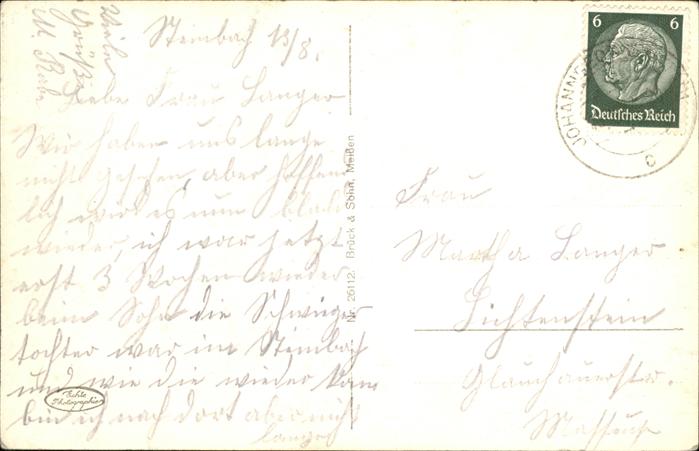 Viele
Grüße
M.
Steinbach 13/8.
Liebe Frau Langer
Wir haben uns lange
nicht gesehen aber hoffent
lich wird es nun
wieder, ich war jetzt
erst 3 Wochen wieder
beim Sohn die Schwieger
tochter war im Steinbach
und wie die wieder kam
bin ich nach dort aber nicht
lange
Echte
Photographie
Nr. 26112. Brück & Sohn, Meißen
6 6
Deutsches Reich
JOHANN
c
Frau
Martha Langer
Lichtenstein
Glauchauerstr.